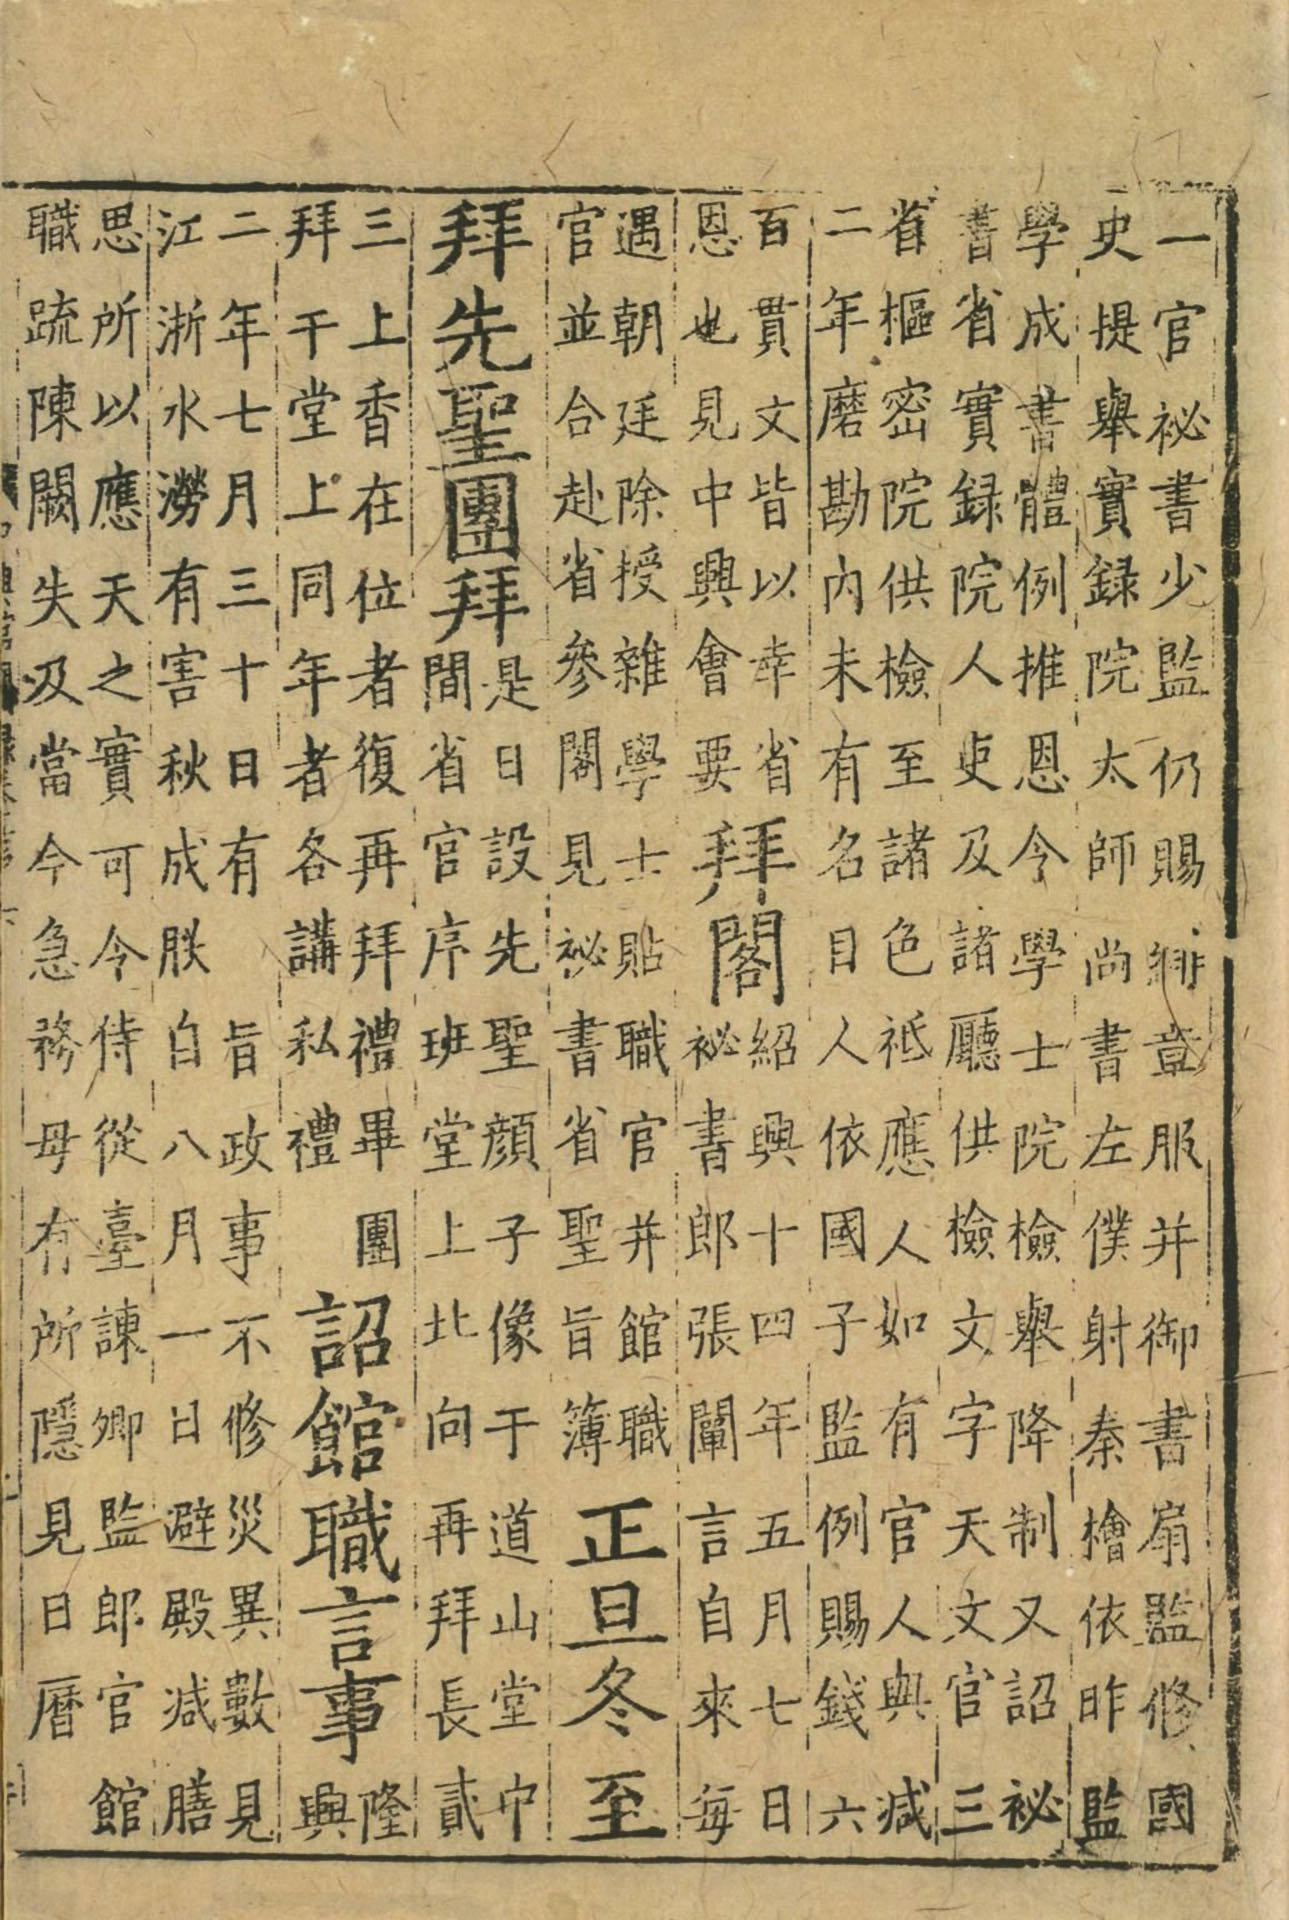 一官祕書少監仍賜緋章服并御書扇監修國
史提舉實録院太師尚書左僕射秦檜依昨監
學成書體例推恩令學士院檢舉降制又詔祕
書省實録院人吏及諸廳供檢文字天文官三
省樞密院供檢至諸色祗應人如有官人與减
二年磨勘内未有名目人依國子監例賜錢六
百貫文皆以幸省
恩也見中興會要
拜閣
紹興十四年五月七日
祕書郎張闡言自來每
遇朝廷除授雜學士貼職官并館職
官並合赴省參閣見祕書省聖旨簿
正旦冬至
拜先聖團拜
是日設先聖顔子像于道山堂中
間省官序班堂上北向再拜長貳
三上香在位者復再拜禮畢團
拜于堂上同年者各講私禮
詔館職言事
隆
興
二年七月三十日有旨政事不修災異數見
江浙水澇有害秋成朕自八月一日避殿减膳
思所以應天之實可令侍從臺諫卿監郎官館
職疏陳闕失及當今急務毋有所隱見日曆